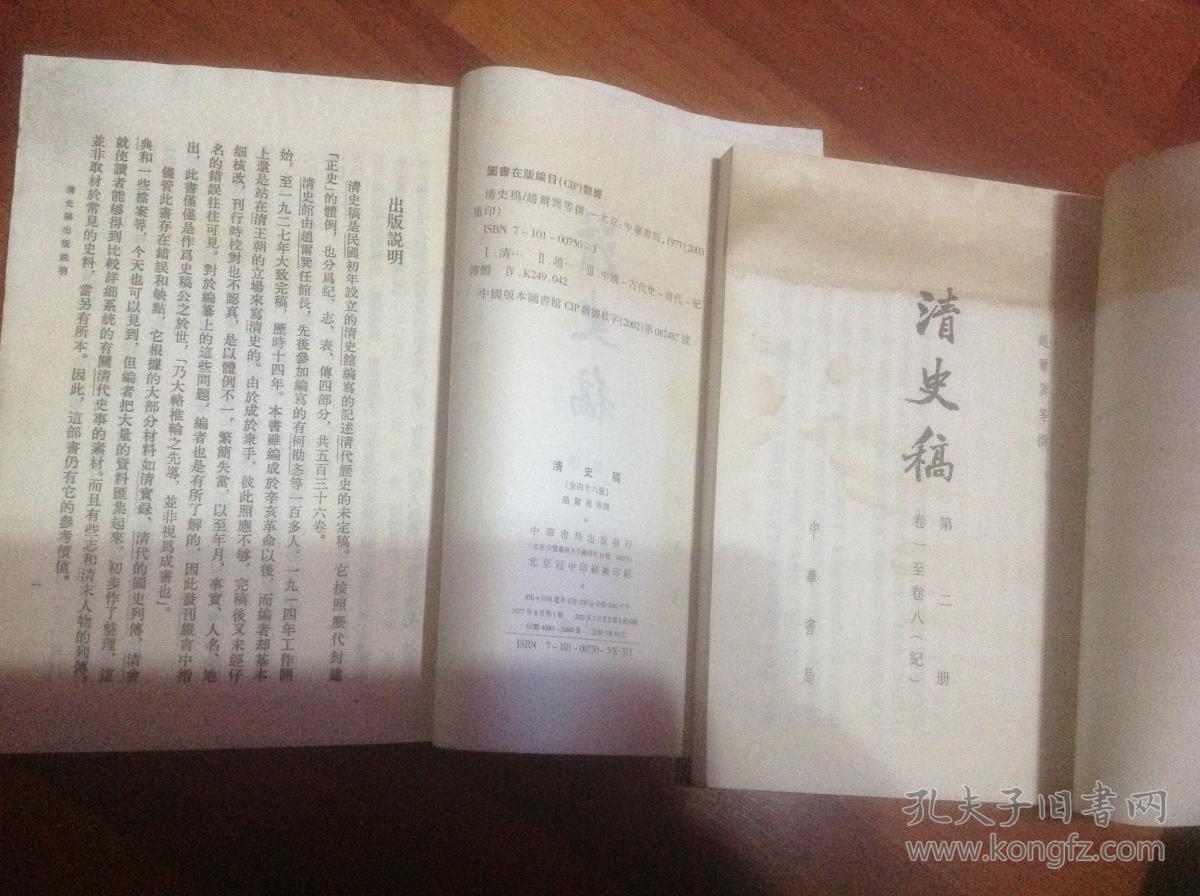 出版説明
清史稿是民國初年設立的清史館編寫的記述清代歷史的未定稿。它按照歷代封建
「正史」的體例，也分爲紀、志、表、傳四部分，共五百三十六卷。
清史館由趙爾巽任館長，先後參加編寫的有柯劭忞等一百多人。一九一四年工作開
始，至一九二七年大致完稿，歷時十四年。本書雖編成於辛亥革命以後，而編者却基本
上還是站在清王朝的立場來寫清史的。由於成於衆手，彼此照應不够，完稿後又未經仔
細核改，刊行時校對也不認真，是以體例不一，繁簡失當，以至年月、事實、人名、地
名的錯誤往往可見。對於編纂上的這些問題，編者也是有所了解的，因此發刊綴言中指
出，此書僅僅是作爲史稿公之於世，「乃大輅椎輪之先導，並非視爲成書也」。
儘管此書存在錯誤和缺點，它根據的大部分材料如清實録、清代的國史列傳、清會
典和一些檔案等，今天也可以見到，但編者把大量的資料匯集起來，初步作了整理，這
就使讀者能够得到比較詳細系統的有關清代史事的素材。而且有些志和清末人物的列傳，
並非取材於常見的史料，當另有所本。因此，這部書仍有它的參考價值。
清史稿出版説明
一
圖書在版編目(CIP)數據
清史稿/趙爾巽等撰.—北京：中華書局，1977(2003
重印)
ISBN 7-101-00750-3
Ⅰ.清… Ⅱ.趙… Ⅲ.中國-古代史-清代-紀
傳體 Ⅳ.K249.042
中國版本圖書館CIP數據核字(2002)第087487號
清史稿
(全四十八册)
趙爾巽等撰
中華書局出版發行
北京冠中印刷廠印刷
ISBN 7-101-00750-3/K·313
趙爾巽等撰
清史稿
第二册
卷一至卷八(紀)
中華書局
孔夫子旧书网
www.kongfz.com